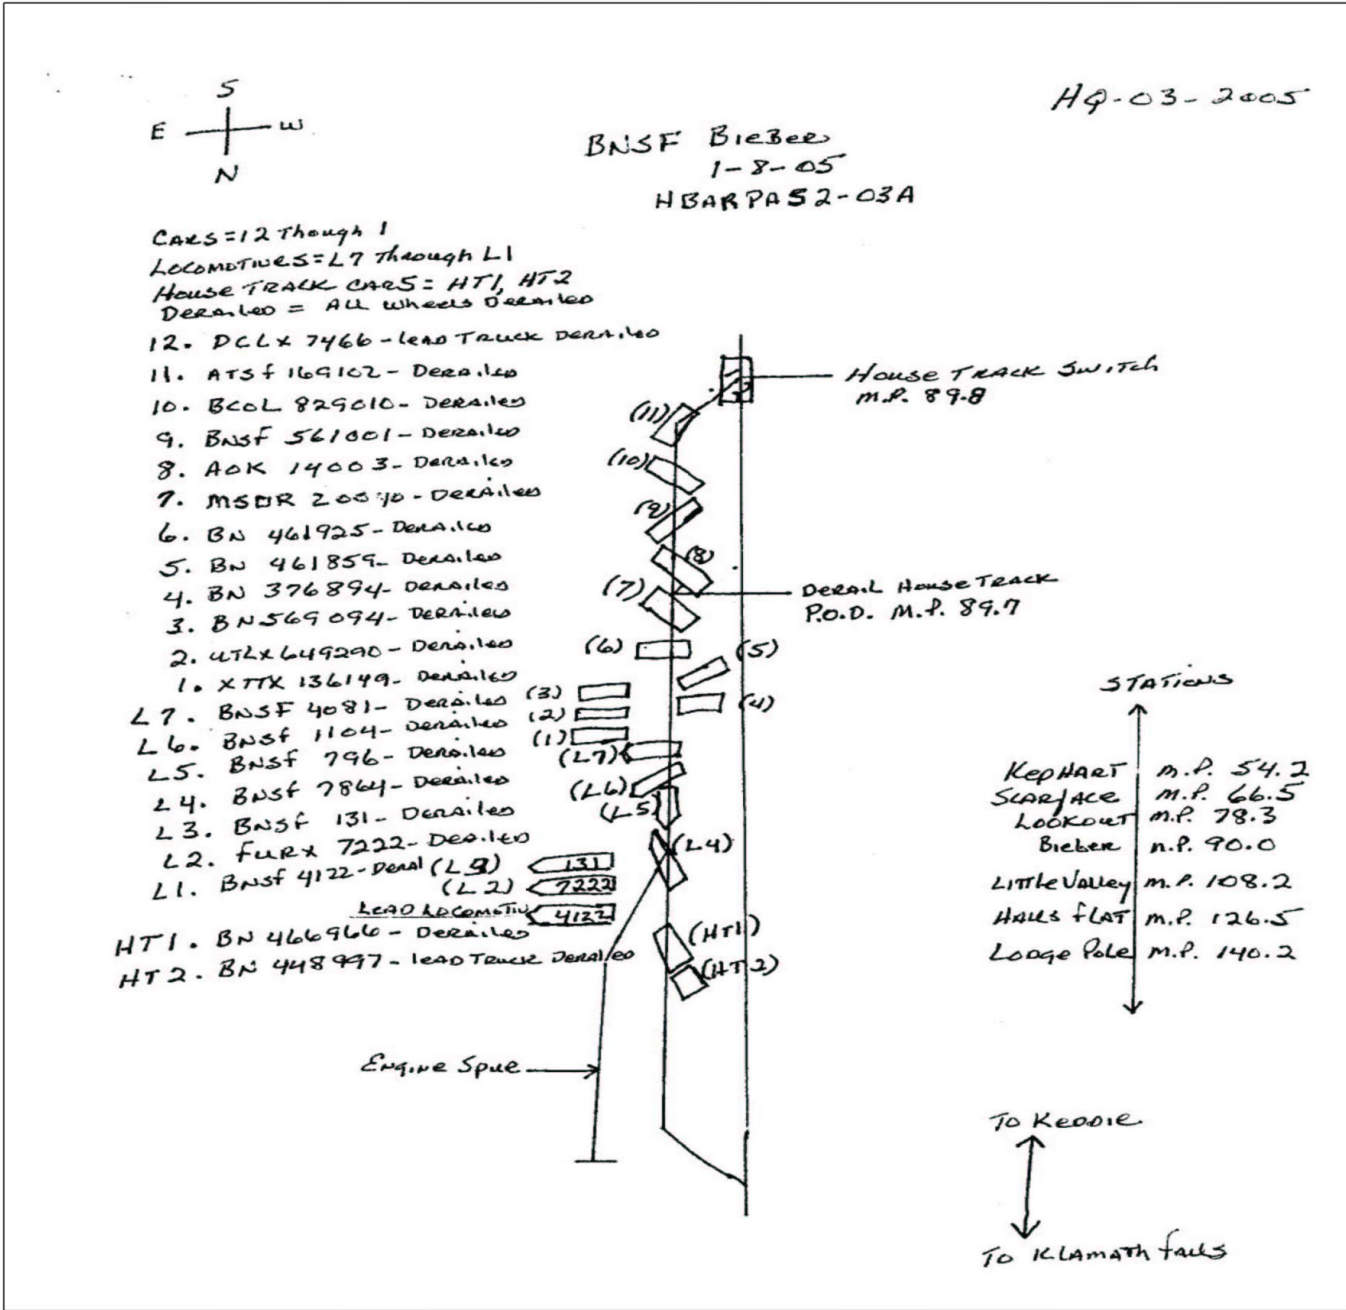 HQ-03-2005
S
E W
N
BNSF Bieber
1-8-05
HBARPAS2-03A
CARS=12 Though 1
LOCOMOTIVES=L7 Through L1
House TRACK CARS= HT1, HT2
Derailed = ALL wheels Derailed
12. DCLX 7466-lead Truck Derailed
11. ATSF 169102- Derailed
10. BCOL 829010- Derailed
9. BNSF 561001- Derailed
8. AOK 14003- Derailed
7. Derailed
6. BN 461925- Derailed
5. BN 461859- Derailed
4. BN 376894- Derailed
3. BN569094- Derailed
2. UTLX649290- Derailed
1. XTTX 136149- Derailed
L7. BNSF 4081- Derailed
L6. BNSF 1104- Derailed
L5. BNSF 796- Derailed
L4. BNSF 7864- Derailed
L3. BNSF 131- Derailed
L2. FURX 7222- Derailed
L1. BNSF 4122-Deral
HT1. BN 466966- Derailed
HT2. BN 448997-lead Truck Derailed
House Track Switch
M.P. 89.8
(11)
(10)
(9)
(8)
Derail House Track
P.O.D. M.P. 89.7
(7)
(6)
(5)
(3)
(4)
(2)
(1)
(L7)
(L6)
(L5)
(L4)
131
(L2) 7222
Lead Locomotiv 4122
(HT1)
(HT2)
Engine Spur
STATIONS
KepHART M.P. 54.2
Scarface M.P. 66.5
Lookout M.P. 78.3
Bieber M.P. 90.0
Little Valley M.P. 108.2
Halls Flat M.P. 126.5
Lodge Pole M.P. 140.2
To Keddie
To Klamath Falls